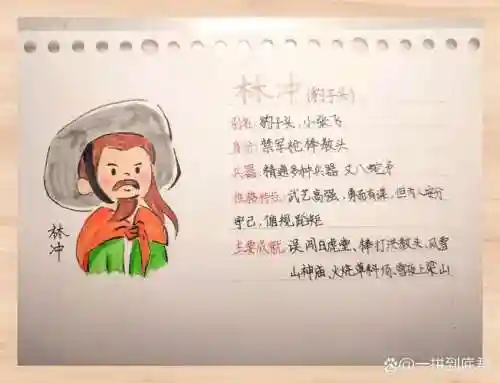 林冲(豹子头)
别名:豹子头、小张飞
身份:禁军枪棒教头
兵器:精通多种兵器 丈八蛇矛
性格特征:武艺高强,勇而有谋,但为人安分
守己,循规蹈矩
主要成就:误闯白虎堂、棒打洪教头、风雪
山神庙、火烧草料场、雪夜上梁山
林
冲
@一拼到底